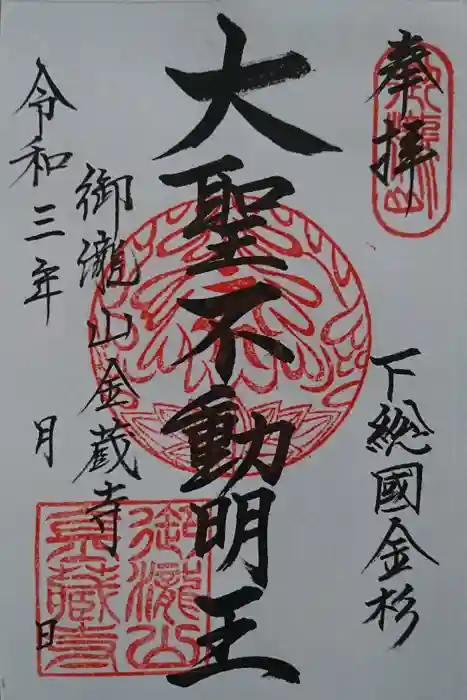 奉拝
下總國金杉
大聖不動明王
御瀧山金蔵寺
令和三年 月 日
御瀧山
御瀧山
金蔵寺